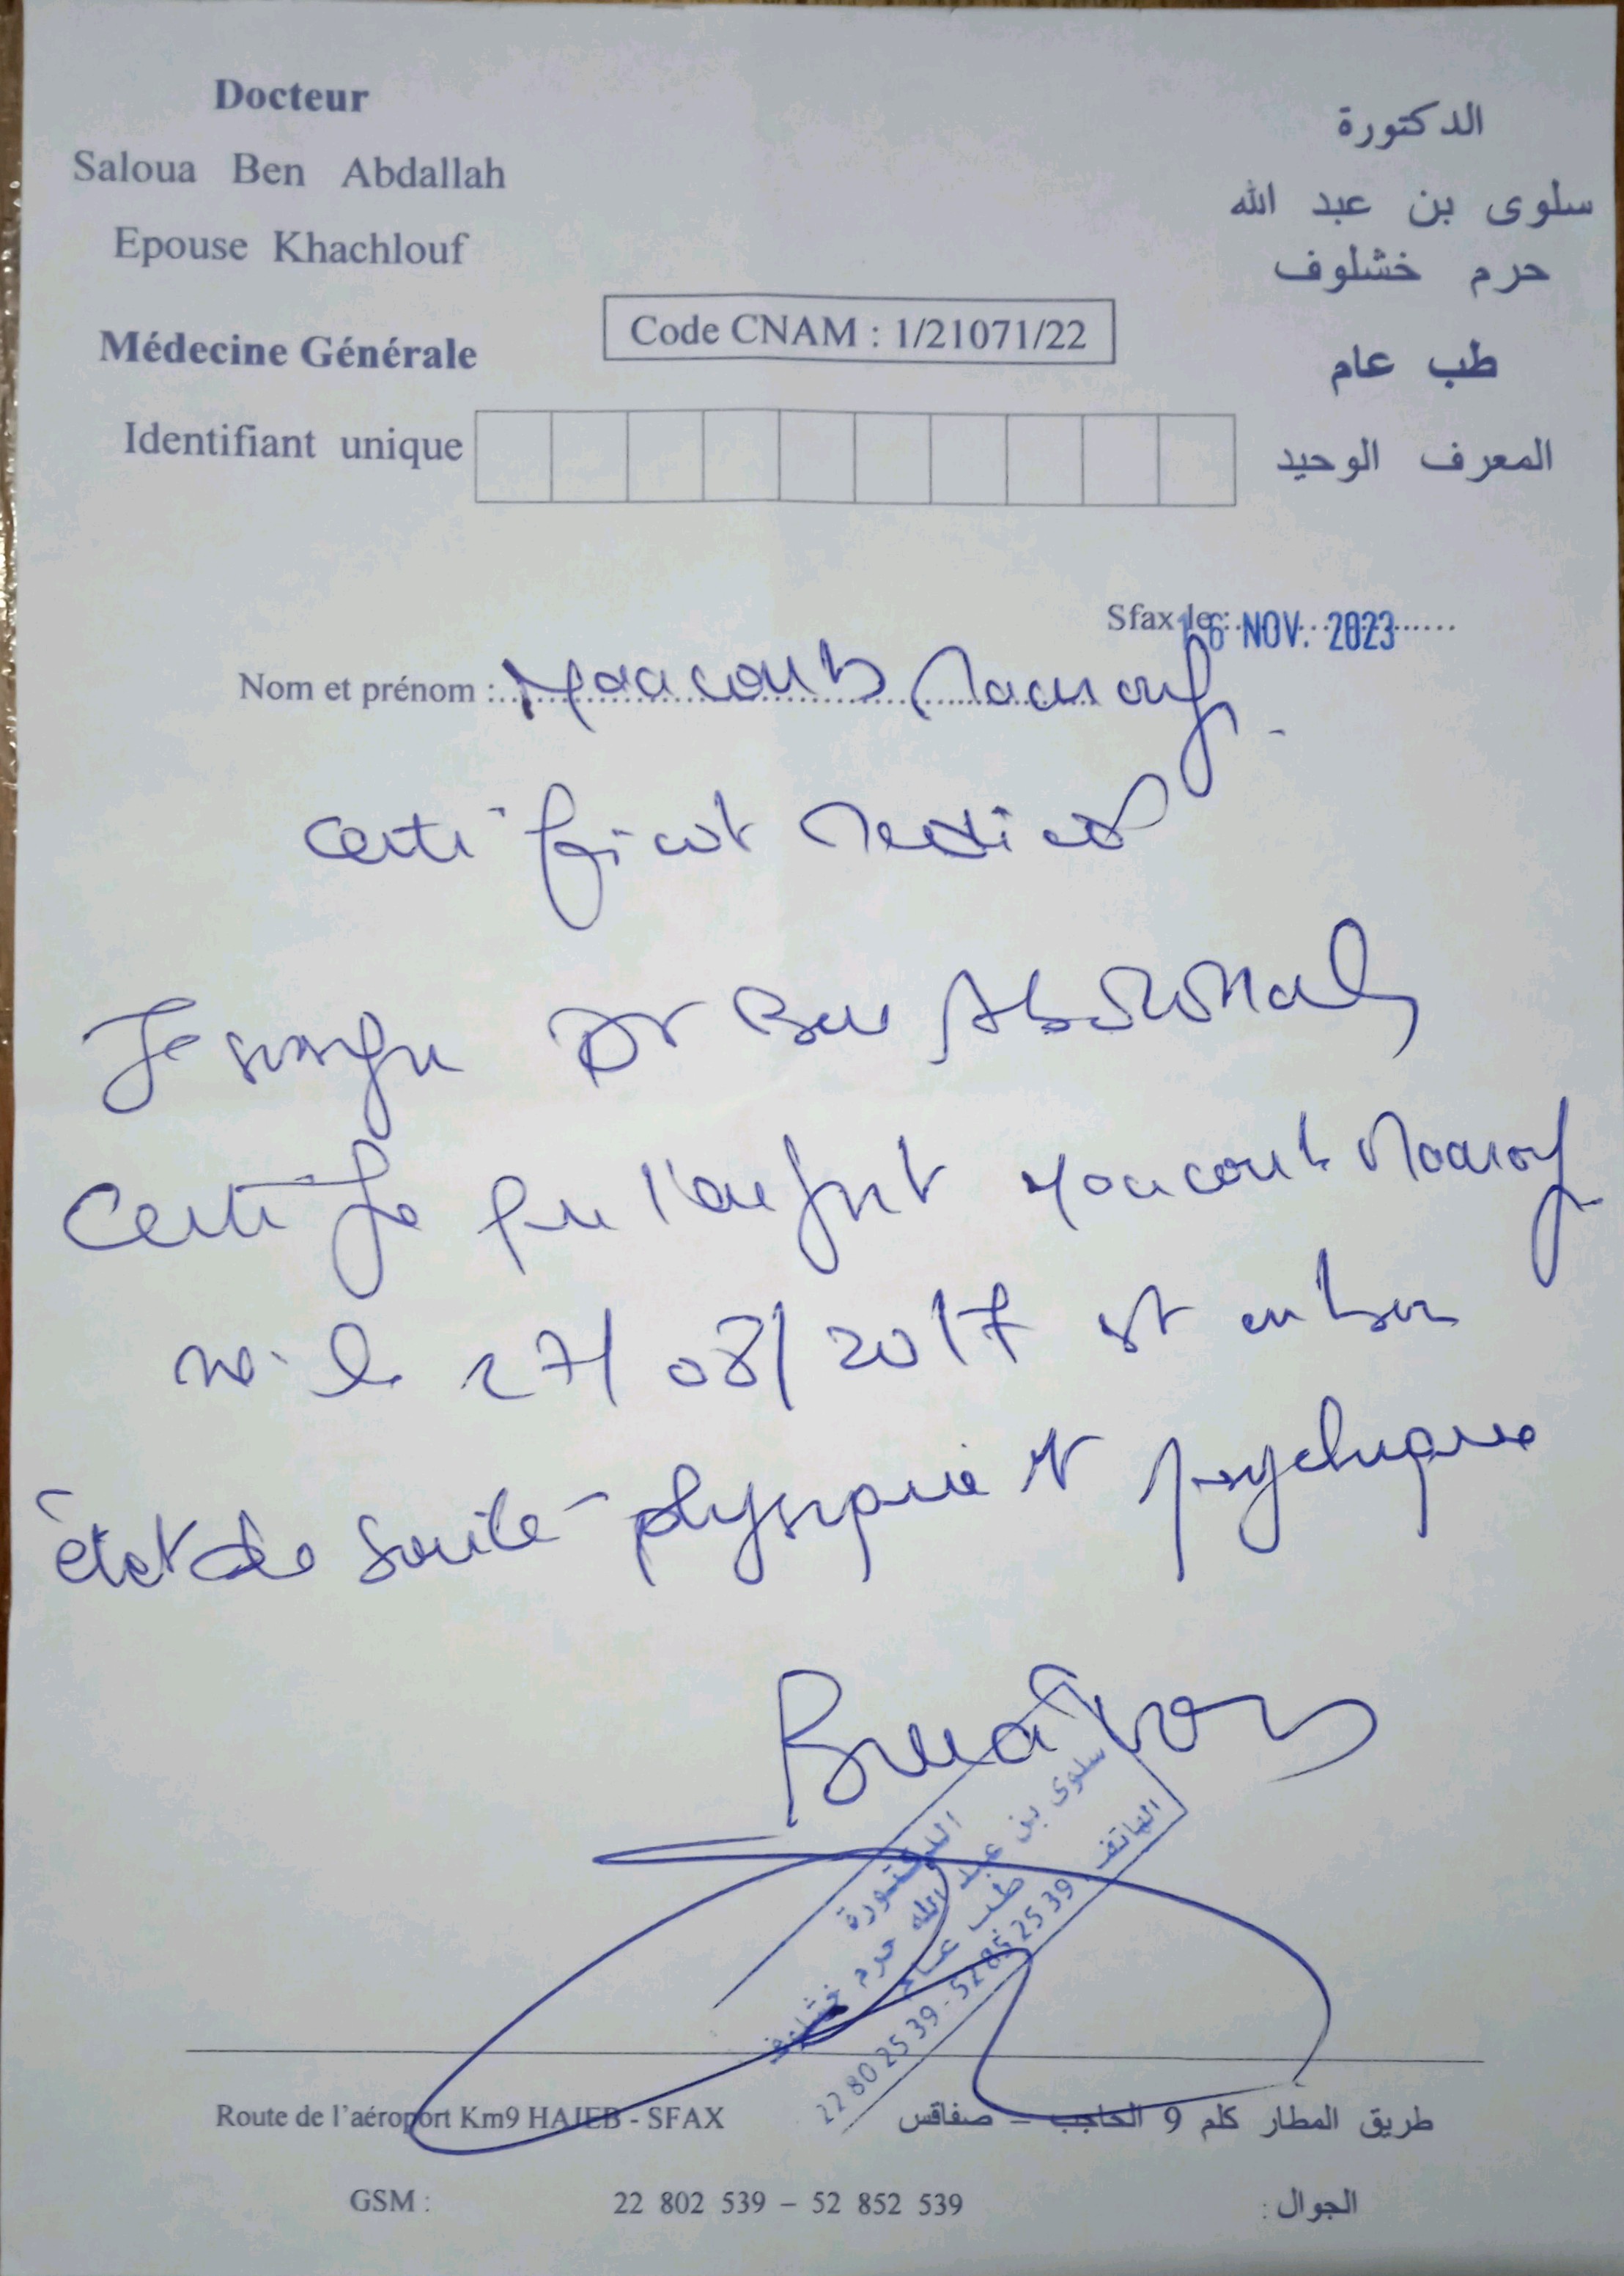 Docteur
Saloua Ben Abdallah
Epouse Khachlouf
Médecine Générale
الدكتورة
سلوى بن عبد الله
حرم خشلوف
طب عام
Code CNAM : 1/21071/22
Identifiant unique المعرف الوحيد
Sfax le : 16 NOV. 2023
Nom et prénom : Yaacoub Maarouf
Certificat Medical
Je soussigne Dr Ben Abdallah
Certifie que l'enfant Yaacoub Maarouf
né le 27/08/2017 est en bon
état de santé physique et psychique
الدكتورة
سلوى بن عبد الله حرم خشلوف
طب عام
الهاتف 22 80 25 39 - 52 85 25 39
Route de l'aéroport Km9 HAJEB - SFAX طريق المطار كلم 9 الحاجب – صفاقس
GSM : 22 802 539 – 52 852 539 الجوال :